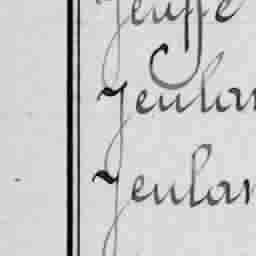 Jeuffe
Jeulan
Jeulan